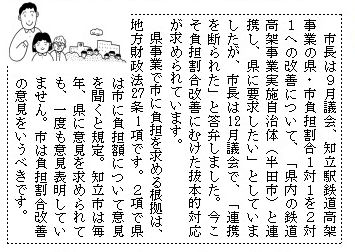 市長は９月議会、知立駅鉄道高架
事業の県・市負担割合１対１を２対
１への改善について、「県内の鉄道
高架事業実施自治体（半田市）と連
携し、県に要求したい」としていま
したが、市長は12月議会で、「連携
を断られた」と答弁しました。今こ
そ負担割合改善にむけた抜本的対応
が求められています。
県事業で市に負担を求める根拠は、
地方財政法27条１項です。２項で県
は市に負担額について意見
を聞くと規定。知立市は毎
年、県に意見を求められて
も、一度も意見表明してい
ません。市は負担割合改善
の意見をいうべきです。